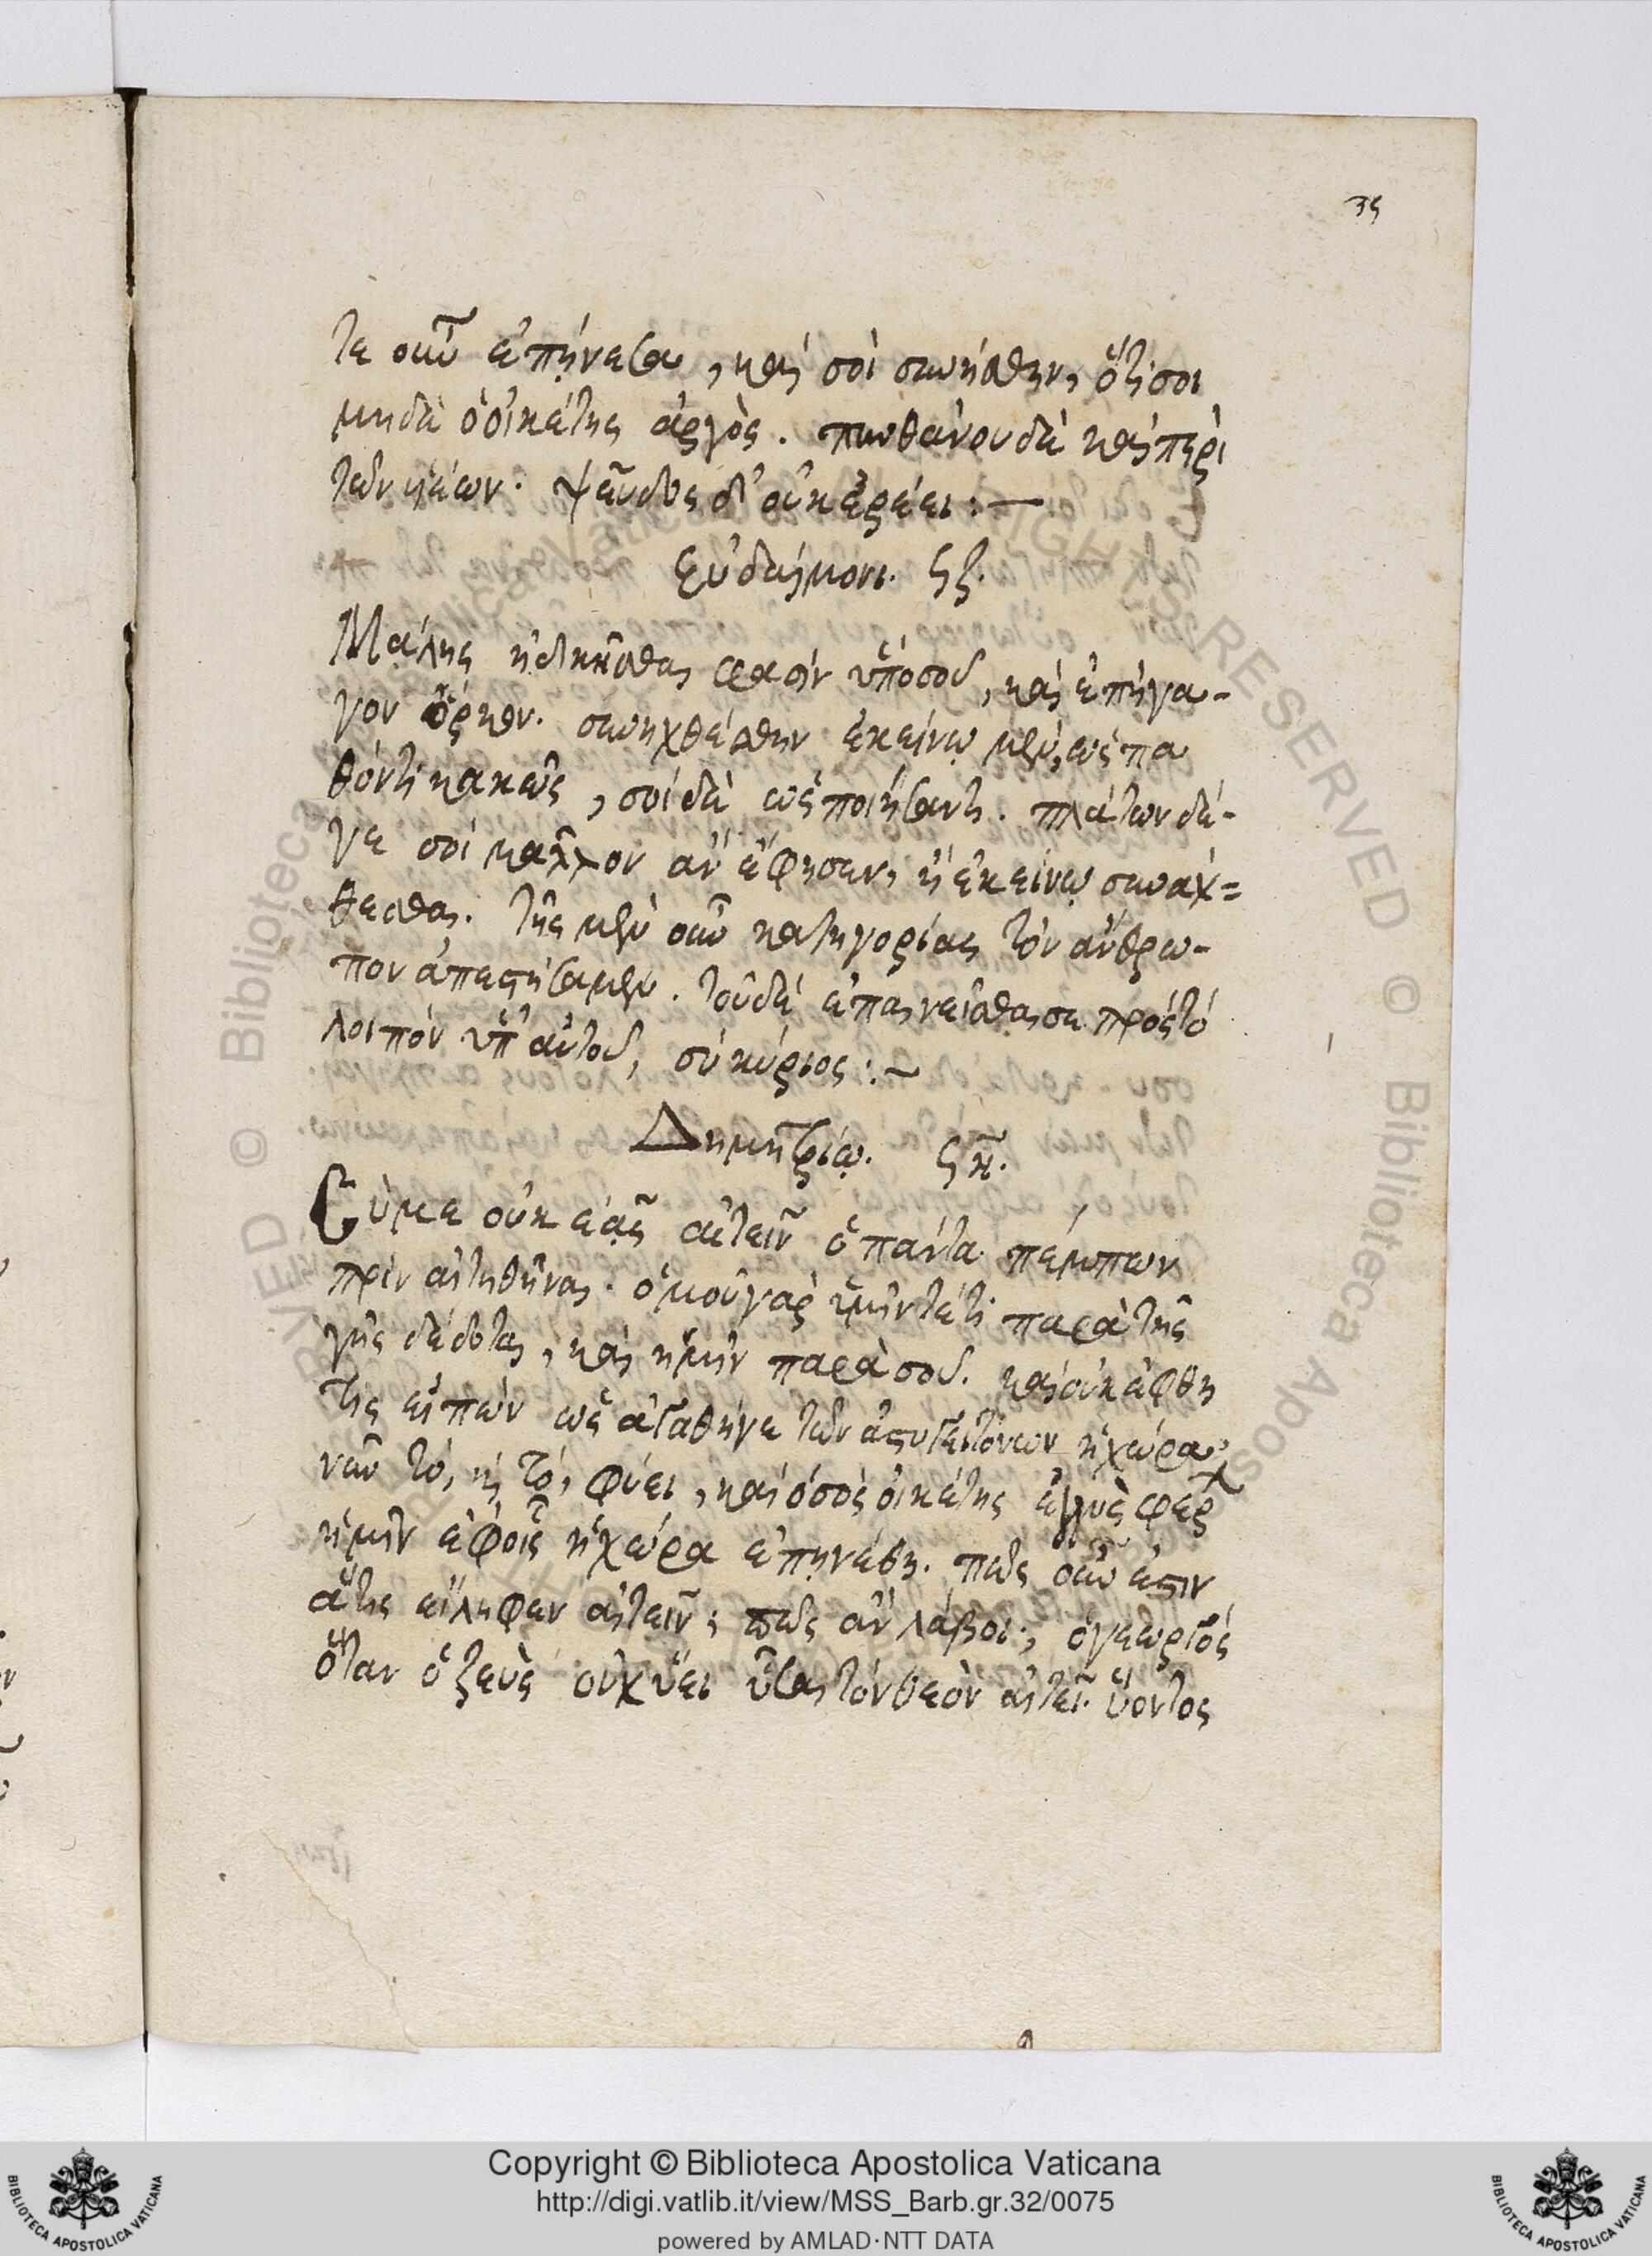 35
τε οὖν ἐπῄνεσα, καὶ σοὶ συνήσθην, ὅτι σοι
μηδὲ ὁ οἰκέτης ἀργὸς. πυνθάνου δὲ καὶ περὶ
τῶν νέων. ψεῦδος δ' οὐκ ἐρέει :—
Εὐδαίμονι. ϛζ.
Μάλης ἠδικῆσθαι φασὶν ὑπὸ σοῦ, καὶ ἐπῆγα-
γον ὅρκον. συνηχθέσθην ἐκείνῳ μὲν, ὡς πα
θόντι κακῶς, σοὶ δὲ ὡς ποιήσαντι. πλάτων δέ-
γε σοὶ μᾶλλον ἂν ἔφησεν, ἢ ἐκείνῳ συνάχ=
θεσθαι. τῆς μὲν οὖν κατηγορίας τὸν ἄνθρω-
πον ἀπεστήσαμεν. τοῦ δέ ἐπαινεῖσθαι σε πρὸς τό
λοιπόν ὑπ' αὐτοῦ, σὺ κύριος :~
Δημητρίῳ. ϛη.
Σύ με οὐκ ἐᾷς αἰτεῖν ὁ πάντα πέμπων
πρὶν αἰτηθῆναι. ὁμοῦ γὰρ ὑμῖν τέ τι παρὰ τῆς
γῆς δέδοται, καὶ ἡμῖν παρὰ σοῦ. καὶ οὐκ ἔφθη
τις εἰπὼν ὡς ἀγαθήγε τῶν ἀστυγειτόνων ἡ χώρα
νῦν τό, ἢ τό, φύει, καὶ ὁ σὸς οἰκέτης ἐγγὺς φέρ
ἡμῖν ἐφ' οἷς ἡ χώρα ἐπῃνέθη. πῶς οὖν ἐστιν
ἅ τις εἴληφεν αἰτεῖν; πῶς ἂν λάβοι; ὁ γεωργὸς
ὅταν ὁ ζεὺς οὐχ ὕει ὗσαι τὸν θεὸν αἰτεῖ. ὕοντος
Copyright © Biblioteca Apostolica Vaticana
http://digi.vatlib.it/view/MSS_Barb.gr.32/0075
powered by AMLAD·NTT DATA